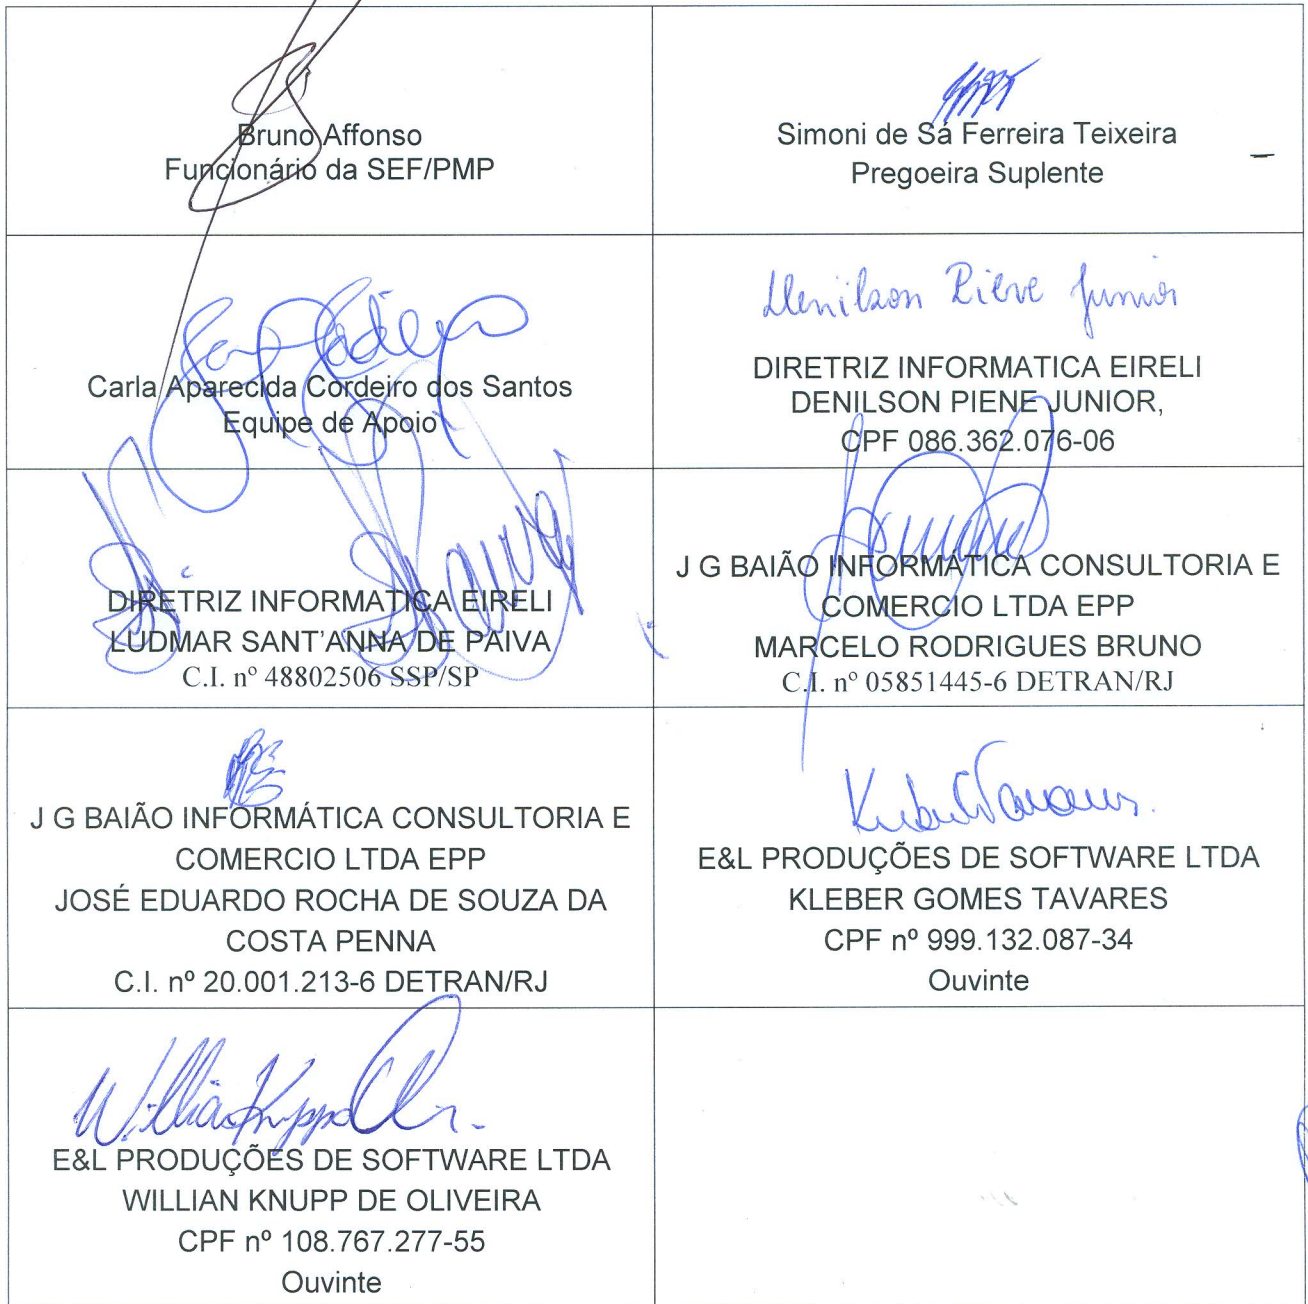 Bruno Affonso
Funcionário da SEF/PMP
Simoni de Sá Ferreira Teixeira
Pregoeira Suplente
Carla Aparecida Cordeiro dos Santos
Equipe de Apoio
Denilson Piene Junior
DIRETRIZ INFORMATICA EIRELI
DENILSON PIENE JUNIOR,
CPF 086.362.076-06
DIRETRIZ INFORMATICA EIRELI
LUDMAR SANT'ANNA DE PAIVA
C.I. nº 48802506 SSP/SP
J G BAIÃO INFORMÁTICA CONSULTORIA E
COMERCIO LTDA EPP
MARCELO RODRIGUES BRUNO
C.I. nº 05851445-6 DETRAN/RJ
J G BAIÃO INFORMÁTICA CONSULTORIA E
COMERCIO LTDA EPP
JOSÉ EDUARDO ROCHA DE SOUZA DA
COSTA PENNA
C.I. nº 20.001.213-6 DETRAN/RJ
E&L PRODUÇÕES DE SOFTWARE LTDA
KLEBER GOMES TAVARES
CPF nº 999.132.087-34
Ouvinte
E&L PRODUÇÕES DE SOFTWARE LTDA
WILLIAN KNUPP DE OLIVEIRA
CPF nº 108.767.277-55
Ouvinte